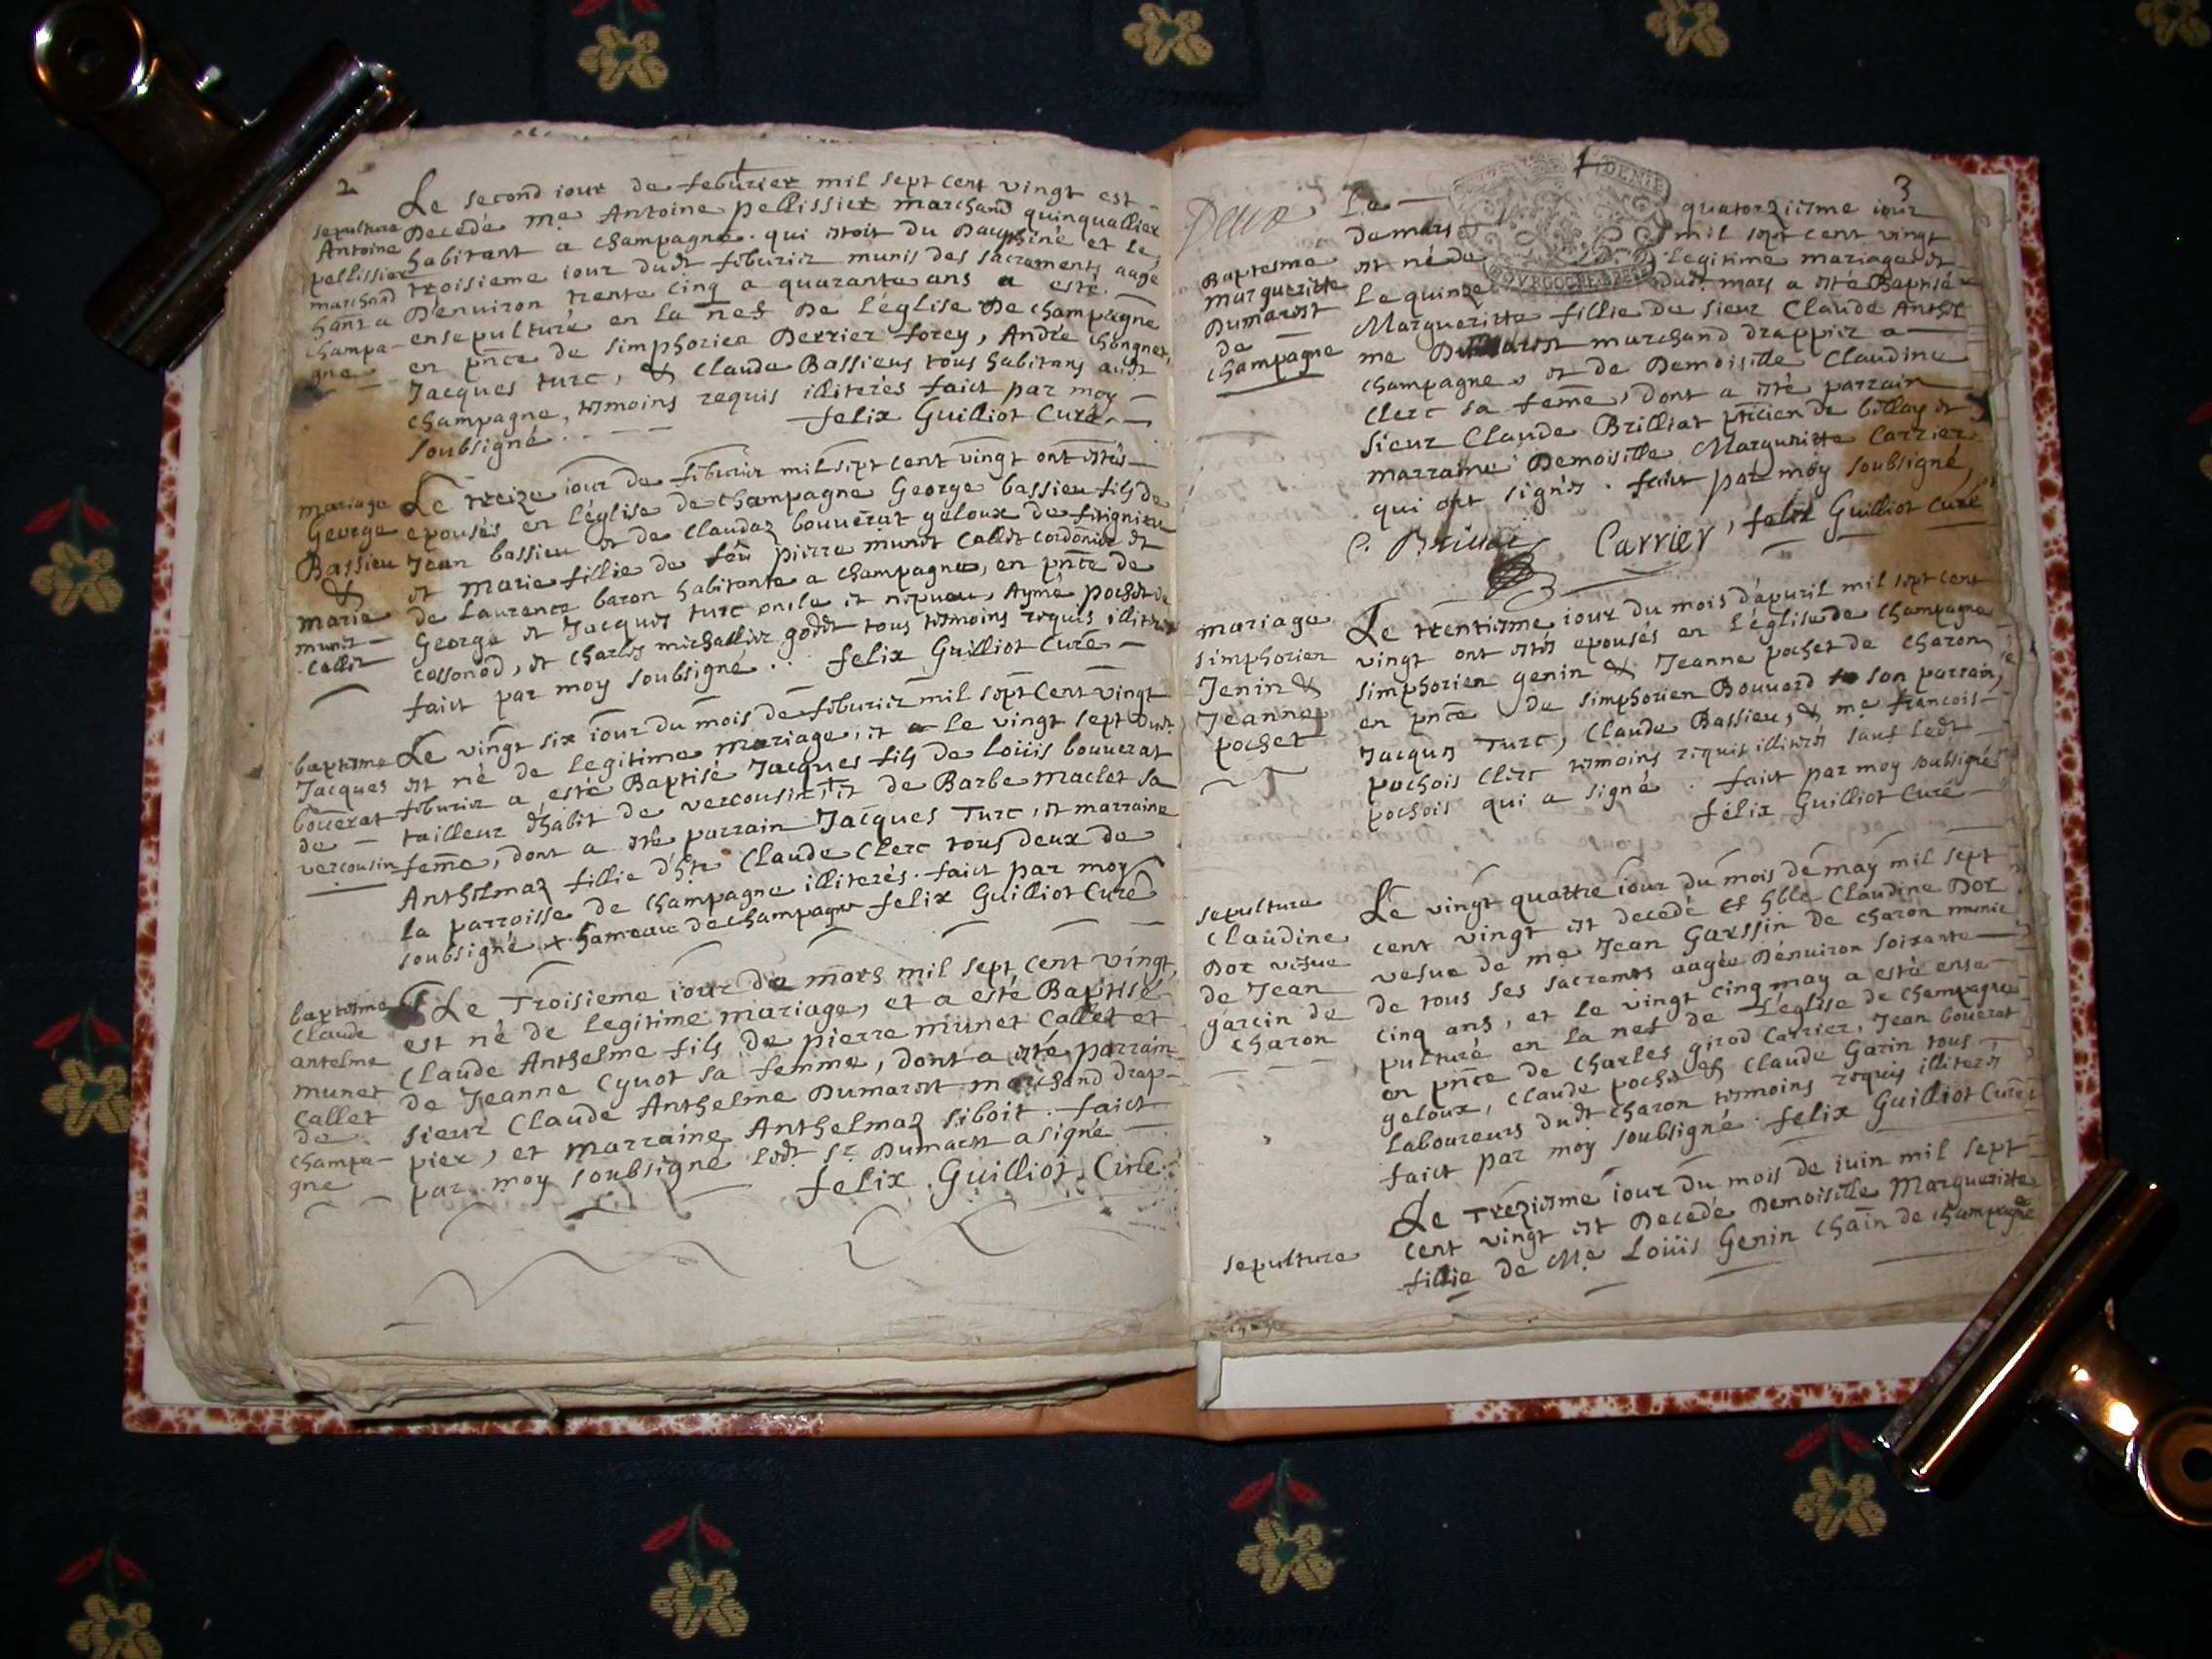 2
Le second iour de feburier mil sept cent vingt est
sepulture
Antoine
pellissier
marchand
hant a
champa-
gne
Decedé me Antoine pellissier marchand quinquallier
habitant a champagne. qui estoit du Dauphiné et le
troisieme iour dudt feburier munis des sacrements aagé
d'enuiron trente cinq a quarante ans a esté
ensepulturé en la nef De l'église De champagne
en pnce de simphorien Derrier forey, André chongnet,
Jacques turc, & claude Bassieus tous habitans audt
champagne, tesmoins requis illiterés faict par moy
soubsigné. felix Guilliot Curé
mariage
George
Bassieu
&
marie
munet
callet
Le treize iour de feburier mil sept cent vingt ont estés
epousés en l'église de champagne George bassieu fils de
Jean bassieu et de claudaz bouuerat geloux de fitignieu
et marie fillie de feu pierre munet callet cordonier et
de Laurence baron habitante a champagne, en pnce de
George et Jacques turc oncle et nepueu, Aymé pochet de
cossonod, et charles michallier godet tous tesmoins requis illiterés
faict par moy soubsigné. felix Guilliot Curé
baptesme
Jacques
bouerat
de
vercousin
Le vingt six iour du mois de feburier mil sept Cent vingt
est né de legitime mariage, et a le vingt sept dudt
feburier a esté Baptisé Jacques fils de loüis bouuerat
tailleur d'habit de vercousin + et de Barbe maclet sa
feme, dont a esté parrain Jacques Turc, et marraine
Anthelmaz fillie d'hte Claude Clerc tous deux de
la parroisse de champagne illiterés. faict par moy
soubsigné + hameau de champagne felix Guilliot Curé
baptesme
Claude
antelme
munet
callet
de
champa-
gne
Le Troisieme iour de mars mil sept cent vingt
est né de legitime mariage, et a esté Baptisé
Claude Anthelme fils de pierre munet Callet et
de Jeanne Cyuot sa femme, dont a esté parrain
sieur Claude Anthelme Dumarest marchand drap-
pier, et marraine Anthelmaz siboit. faict
par moy soubsigné ledt sr Dumarest a signé
felix Guilliot Curé
3
Deux
DENIE
BOVRGOGNE
Le quatorziesme iour
Baptesme
margueritte
Dumarest
de
champagne
de mars mil sept cent vingt
est né de legitime mariage et
le quinze dudt mars a esté Baptisé
Margueritte fillie de sieur Claude Anthel
me Dumarest marchand drappier a
champagne, et de Demoiselle Claudine
Clerc sa feme, dont a esté parrain
sieur Claude Brilliat pticien de billay et
marraine Demoiselle Margueritte Carrier
qui ont signés. faict par moy soubsigné
C. Brilliat Carrier, felix Guilliot Curé
mariage
simphorien
Jenin &
Jeanne
pochet
Le trentiesme iour du mois d'apuril mil sept cent
vingt ont estés epousés en l'église de champagne
simphorien genin & Jeanne pochet de charon
en pnce de simphorien Bouuard son parrain,
Jacques Turc, Claude Bassieu, & me francois
pochois clerc tesmoins requis illiterés sauf ledt
pochois qui a signé. faict par moy soubsigné
felix Guilliot Curé
sepulture
Claudine
Dor vesue
de Jean
garcin de
charon
Le vingt quattre iour du mois de may mil sept
cent vingt est decedé hble Claudine Dor
vesue de me Jean Garssin de charon munie
de tous ses sacremts aagée d'enuiron soixante
cinq ans, et le vingt cinq may a esté ense-
pulturé en la nef de l'église de champagne
en pnce de Charles girod Carrier, Jean bouerat
geloux, claude pochet & Claude Garin tous
laboureurs dudt charon tesmoins requis illiterés
faict par moy soubsigné. felix Guilliot Curé
sepulture
Le Treziesme iour du mois de iuin mil sept
cent vingt est Decedé Demoiselle Margueritte
fillie de Me Loüis Genin chain de champagne